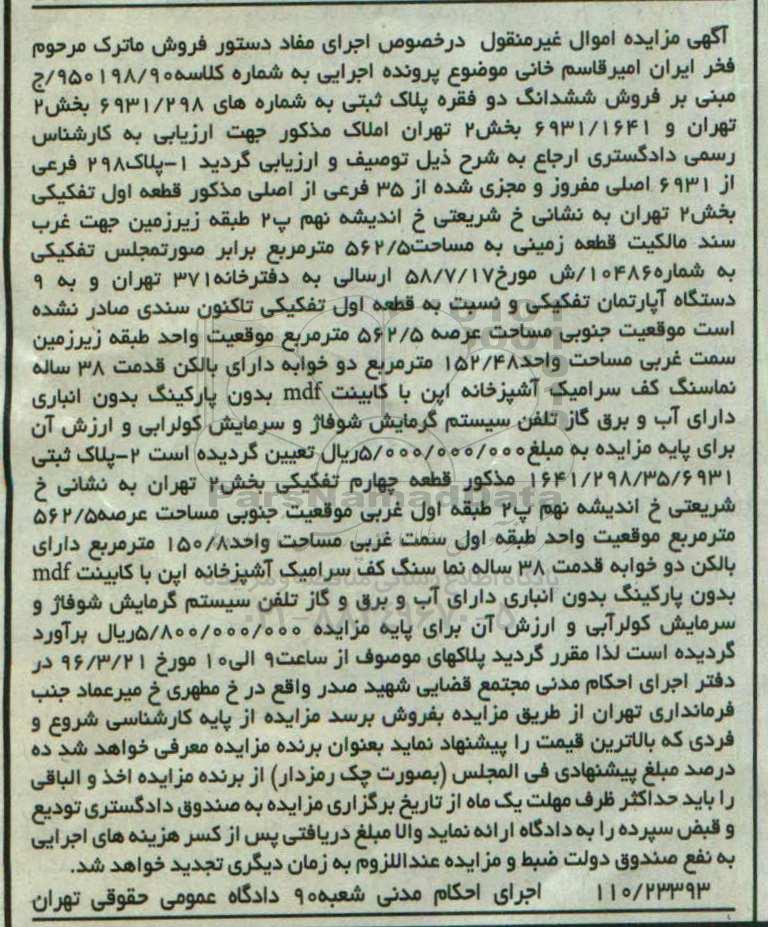 آگهی مزایده اموال غیرمنقول درخصوص اجرای مفاد دستور فروش ماترک مرحوم
فخر ایران امیرقاسم خانی موضوع پرونده اجرایی به شماره کلاسه۹۵۰۱۹۸/۹۰/ج
مبنی بر فروش ششدانگ دو فقره پلاک ثبتی به شماره های ۶۹۳۱/۲۹۸ بخش۲
تهران و ۶۹۳۱/۱۶۴۱ بخش۲ تهران املاک مذکور جهت ارزیابی به کارشناس
رسمی دادگستری ارجاع به شرح ذیل توصیف و ارزیابی گردید ۱-پلاک۲۹۸ فرعی
از ۶۹۳۱ اصلی مفروز و مجزی شده از ۳۵ فرعی از اصلی مذکور قطعه اول تفکیکی
بخش۲ تهران به نشانی خ شریعتی خ اندیشه نهم پ۲ طبقه زیرزمین جهت غرب
سند مالکیت قطعه زمینی به مساحت۵۶۲/۵ مترمربع برابر صورتمجلس تفکیکی
به شماره۱۰۴۸۶/ش مورخ۵۸/۷/۱۷ ارسالی به دفترخانه۳۷۱ تهران و به ۹
دستگاه آپارتمان تفکیکی و نسبت به قطعه اول تفکیکی تاکنون سندی صادر نشده
است موقعیت جنوبی مساحت عرصه ۵۶۲/۵ مترمربع موقعیت واحد طبقه زیرزمین
سمت غربی مساحت واحد۱۵۲/۴۸ مترمربع دو خوابه دارای بالکن قدمت ۳۸ ساله
نماسنگ کف سرامیک آشپزخانه اپن با کابینت mdf بدون پارکینگ بدون انباری
دارای آب و برق گاز تلفن سیستم گرمایش شوفاژ و سرمایش کولرابی و ارزش آن
برای پایه مزایده به مبلغ۵/۰۰۰/۰۰۰/۰۰۰ریال تعیین گردیده است ۲-پلاک ثبتی
۱۶۴۱/۲۹۸/۳۵/۶۹۳۱ مذکور قطعه چهارم تفکیکی بخش۲ تهران به نشانی خ
ParsNamadData
شریعتی خ اندیشه نهم پ۲ طبقه اول غربی موقعیت جنوبی مساحت عرصه۵۶۲/۵
مترمربع موقعیت واحد طبقه اول سمت غربی مساحت واحد۱۵۰/۸ مترمربع دارای
بالکن دو خوابه قدمت ۳۸ ساله نما سنگ کف سرامیک آشپزخانه اپن با کابینت mdf
بدون پارکینگ بدون انباری دارای آب و برق و گاز تلفن سیستم گرمایش شوفاژ و
سرمایش کولرآبی و ارزش آن برای پایه مزایده ۵/۸۰۰/۰۰۰/۰۰۰ریال برآورد
گردیده است لذا مقرر گردید پلاکهای موصوف از ساعت۹ الی۱۰ مورخ ۹۶/۳/۲۱ در
دفتر اجرای احکام مدنی مجتمع قضایی شهید صدر واقع در خ مطهری خ میرعماد جنب
فرمانداری تهران از طریق مزایده بفروش برسد مزایده از پایه کارشناسی شروع و
فردی که بالاترین قیمت را پیشنهاد نماید بعنوان برنده مزایده معرفی خواهد شد ده
درصد مبلغ پیشنهادی فی المجلس (بصورت چک رمزدار) از برنده مزایده اخذ و الباقی
را باید حداکثر ظرف مهلت یک ماه از تاریخ برگزاری مزایده به صندوق دادگستری تودیع
و قبض سپرده را به دادگاه ارائه نماید والا مبلغ دریافتی پس از کسر هزینه های اجرایی
به نفع صندوق دولت ضبط و مزایده عنداللزوم به زمان دیگری تجدید خواهد شد.
۱۱۰/۲۳۳۹۳ اجرای احکام مدنی شعبه۹۰ دادگاه عمومی حقوقی تهران